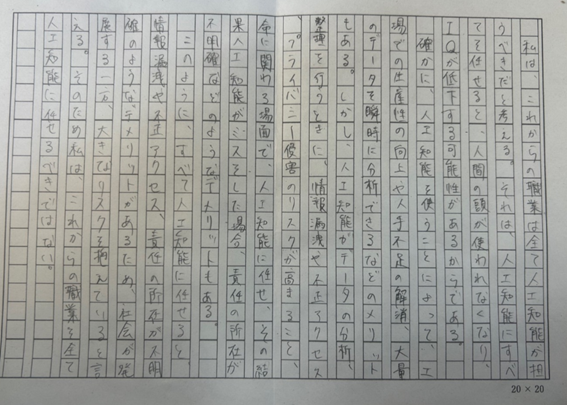 私は、これからの職業は全て人工知能が担
うべきだと考える。それは、人工知能にすべ
てを任せると、人間の頭が使われなくなり、
IQが低下する可能性があるからである。
確かに、人工知能を使うことによって、工
場での生産性の向上や人手不足の解消、大量
のデータを瞬時に分析できるなどのメリット
もある。しかし、人工知能がデータの分析、
整理を行うときに、情報漏洩や不正アクセス
、プライバシー侵害のリスクが高まること、
命に関わる場面で、人工知能に任せ、その結
果人工知能がミスをした場合、責任の所在が
不明確などのようなデメリットもある。
このように、すべて人工知能に任せると、
情報漏洩や不正アクセス、責任の所在が不明
確のようなデメリットがあるため、社会が発
展する一方、大きなリスクを抱えていると言
える。そのため私は、これからの職業を全て
人工知能に任せるべきではない。
20 × 20